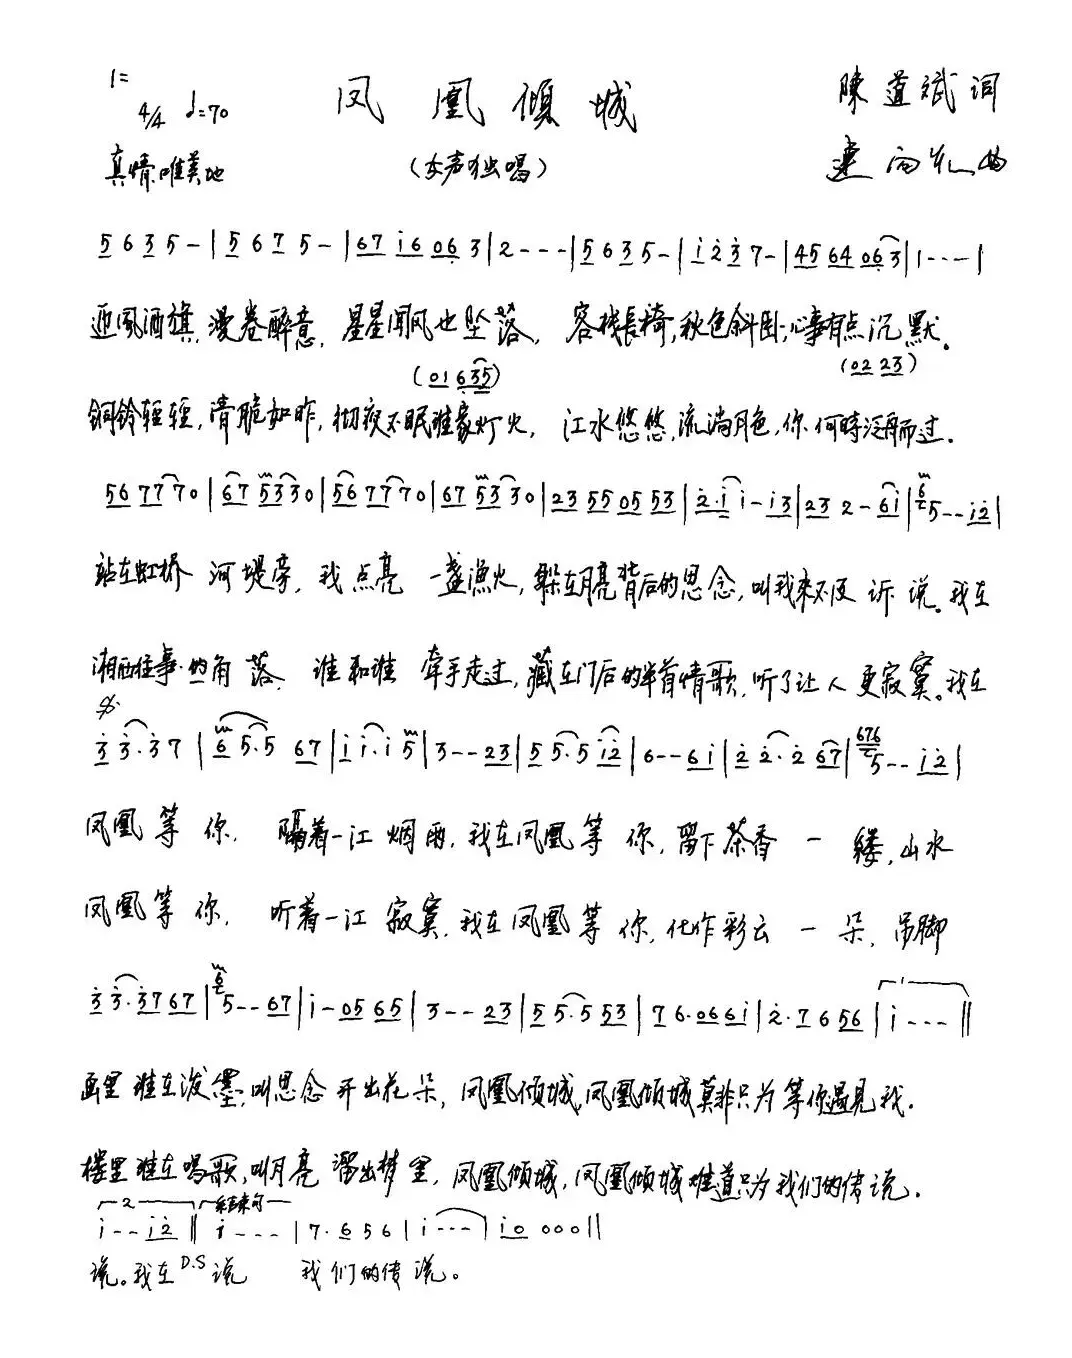 1=
4/4 ♩=70
凤凰倾城
陳道斌词
真情唯美地
(女声独唱)
曲
5 6 3 5 - | 5 6 7 5 - | 67 i6 06 3 | 2 - - - | 5 6 3 5 - | i 2 3 7 - | 45 64 06 3 | 1 - - - |
迎风酒旗,漫卷醉意,星星闻风也坠落,客栈長椅,秋色斜阳,心事有点沉默。
(01 635) (02 23)
铜铃轻轻,清脆如昨,彻夜不眠谁家灯火,江水悠悠,流淌月色,你何時泛舟而过.
56 77 70 | 67 53 30 | 56 77 70 | 67 53 30 | 23 55 05 53 | 2·i i - i3 | 23 2 - 6i | 6 5 - - i2 |
站在虹桥河堤旁,我点亮一盏渔火,躲在月亮背后的思念,叫我来不及诉说。我在
湘西往事的角落,谁和谁牵手走过,藏在门后的半首情歌,听了让人更寂寞。我在
3 3·3 7 | 6 5·5 67 | i i·i 5 | 3 - - 23 | 5 5·5 i2 | 6 - - 6i | 2 2·2 67 | 676 5 - - i2 |
凤凰等你,隔着一江烟雨,我在凤凰等你,留下茶香一缕,山水
凤凰等你,听着一江寂寞,我在凤凰等你,化作彩云一朵,吊脚
3 3·37 67 | 6 5 - - 67 | i - 05 65 | 3 - - 23 | 5 5·5 53 | 7 6·06 6i | 2·7 6 56 | i - - - ||
画里谁在泼墨,叫思念开出花朵,凤凰倾城,凤凰倾城莫非只为等你遇见我.
楼里谁在唱歌,叫月亮溜出梦里,凤凰倾城,凤凰倾城难道只为我们的传说.
2 结束句
i - - i2 || i - - - | 7·6 5 6 | i - - - | i0 000 ||
说。我在D.S说 我们的传说。